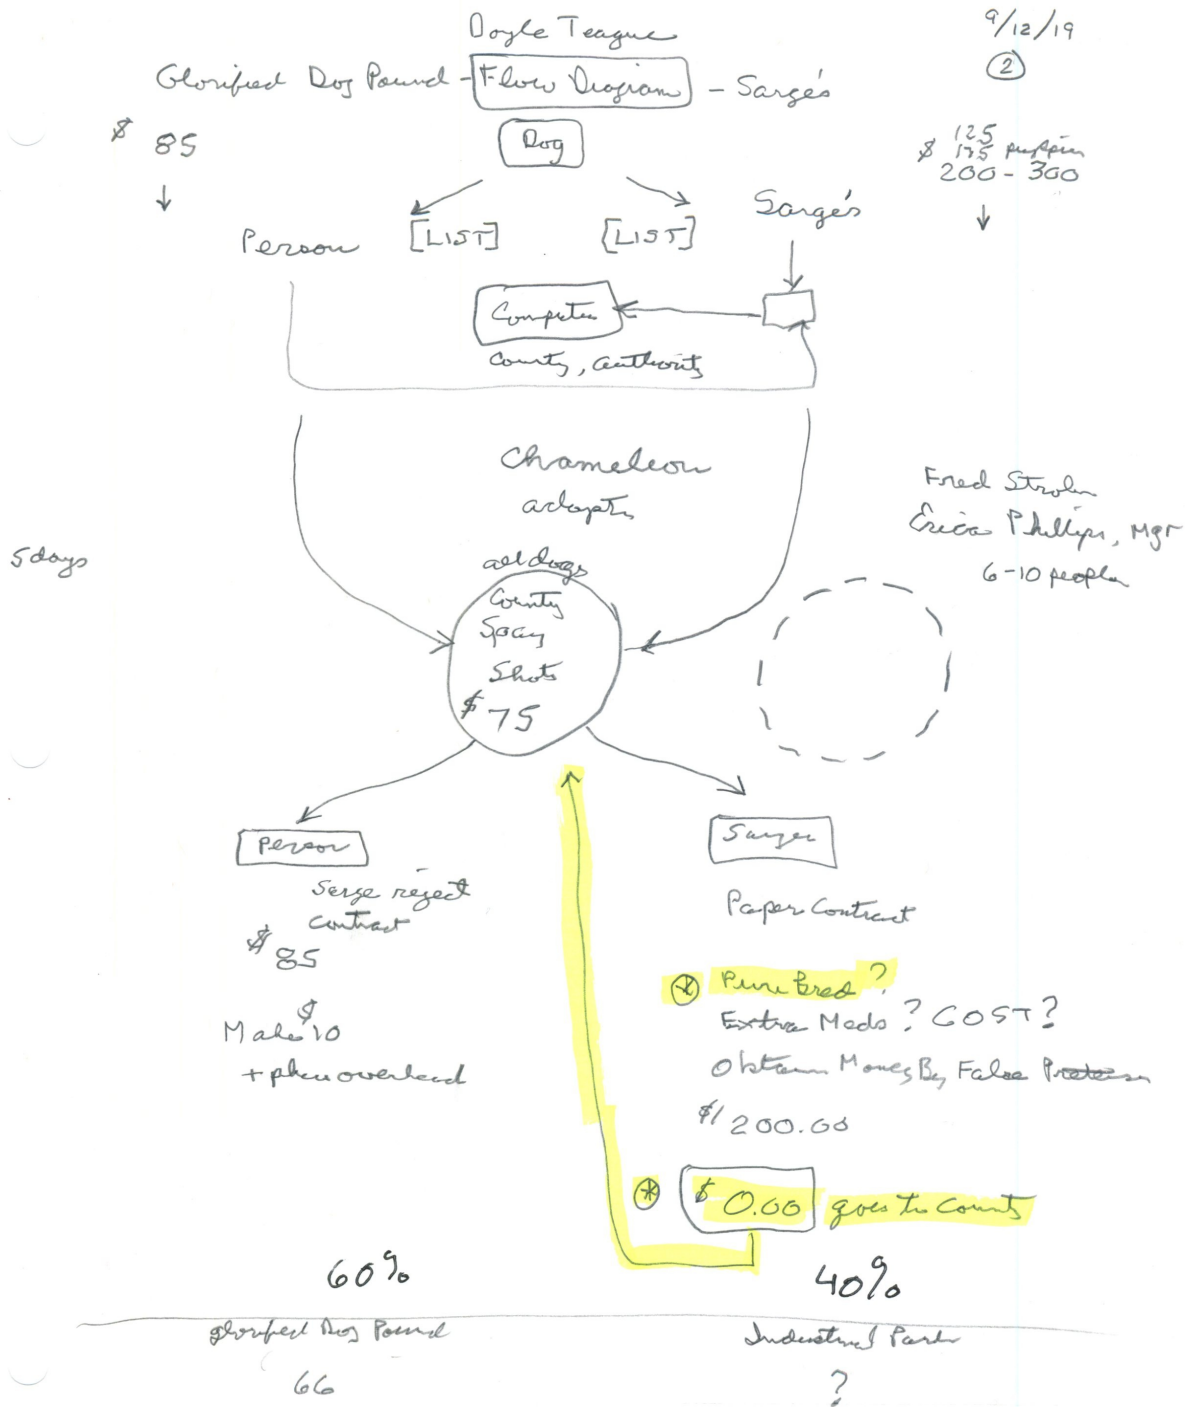 Doyle Teague
9/12/19
2
Glorified Dog Pound - Flow Diagram - Sarge's
$ 85
Dog
125
$ 175 puppies
200 - 300
Person
[LIST]
[LIST]
Sarge's
Computer
County, authority
Chameleon
adopts
Fred Strohm
Erica Phillips, Mgr
6-10 people
5 days
all dogs
County
Spay
Shots
$ 75
Person
Serge reject
contract
$ 85
Make $10
+ plus overhead
Sarges
Paper Contract
* Pure bred ?
Extra Meds ? COST ?
Obtain Money By False Pretense
$ 200.00
* $ 0.00 goes to County
60%
40%
glorified Dog Pound
Industrial Park
66
?